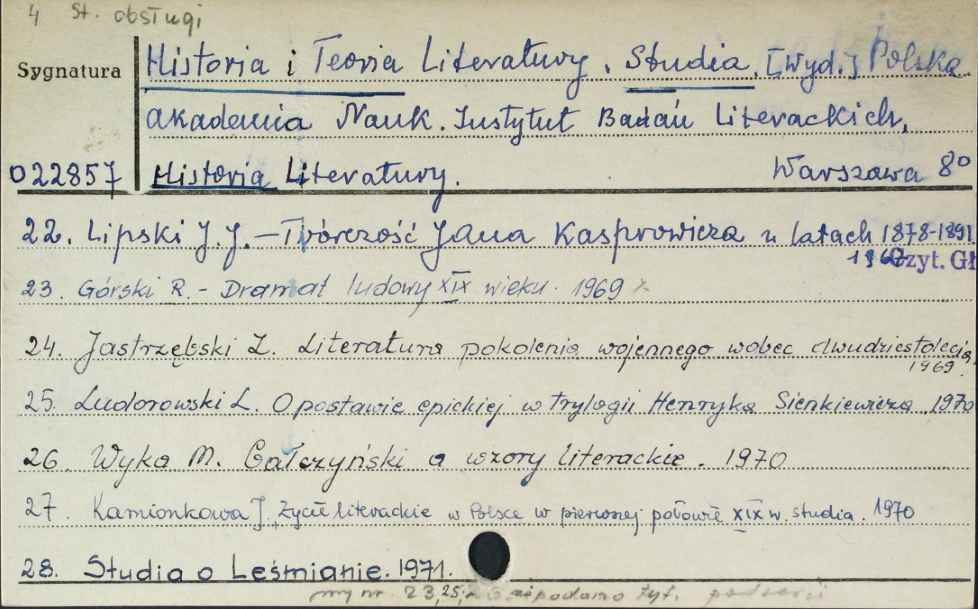 4 st. obsługi
Sygnatura
Historia i Teoria Literatury. Studia. [Wyd.] Polska
akademia Nauk. Instytut Badań Literackich,
022857 Historia Literatury. Warszawa 8⁰
22. Lipski J.J. – Twórczość Jana Kasprowicza w latach 1878-1891
1967 Czyt. Gł
23. Górski R. - Dramat ludowy XIX wieku. 1969
24. Jastrzębski Z. Literatura pokolenia wojennego wobec dwudziestolecia.
1969
25. Ludorowski L. O postawie epickiej w trylogii Henryka Sienkiewicza 1970
26. Wyka M. Gałczyński a wzory literackie. 1970
27. Kamionkowa J. Życie literackie w Polsce w pierwszej połowie XIX w. studia. 1970
28. Studia o Leśmianie. 1971.
nr 23, 25, podano tyt.